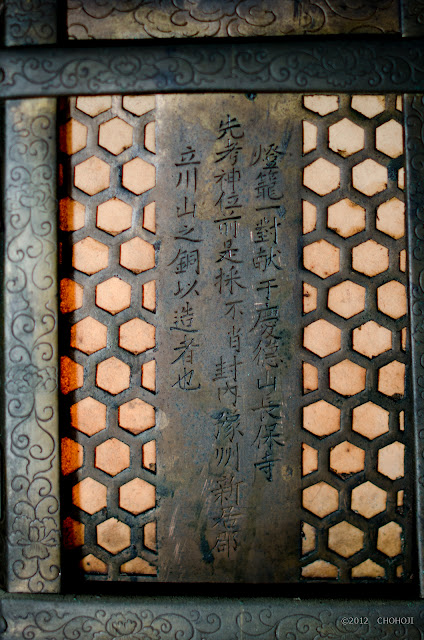 燈籠一對献于慶徳山長保寺
先考神位前是採不肖封内豫州新居郡
立川山之銅以造者也
©2012 CHOHOJI